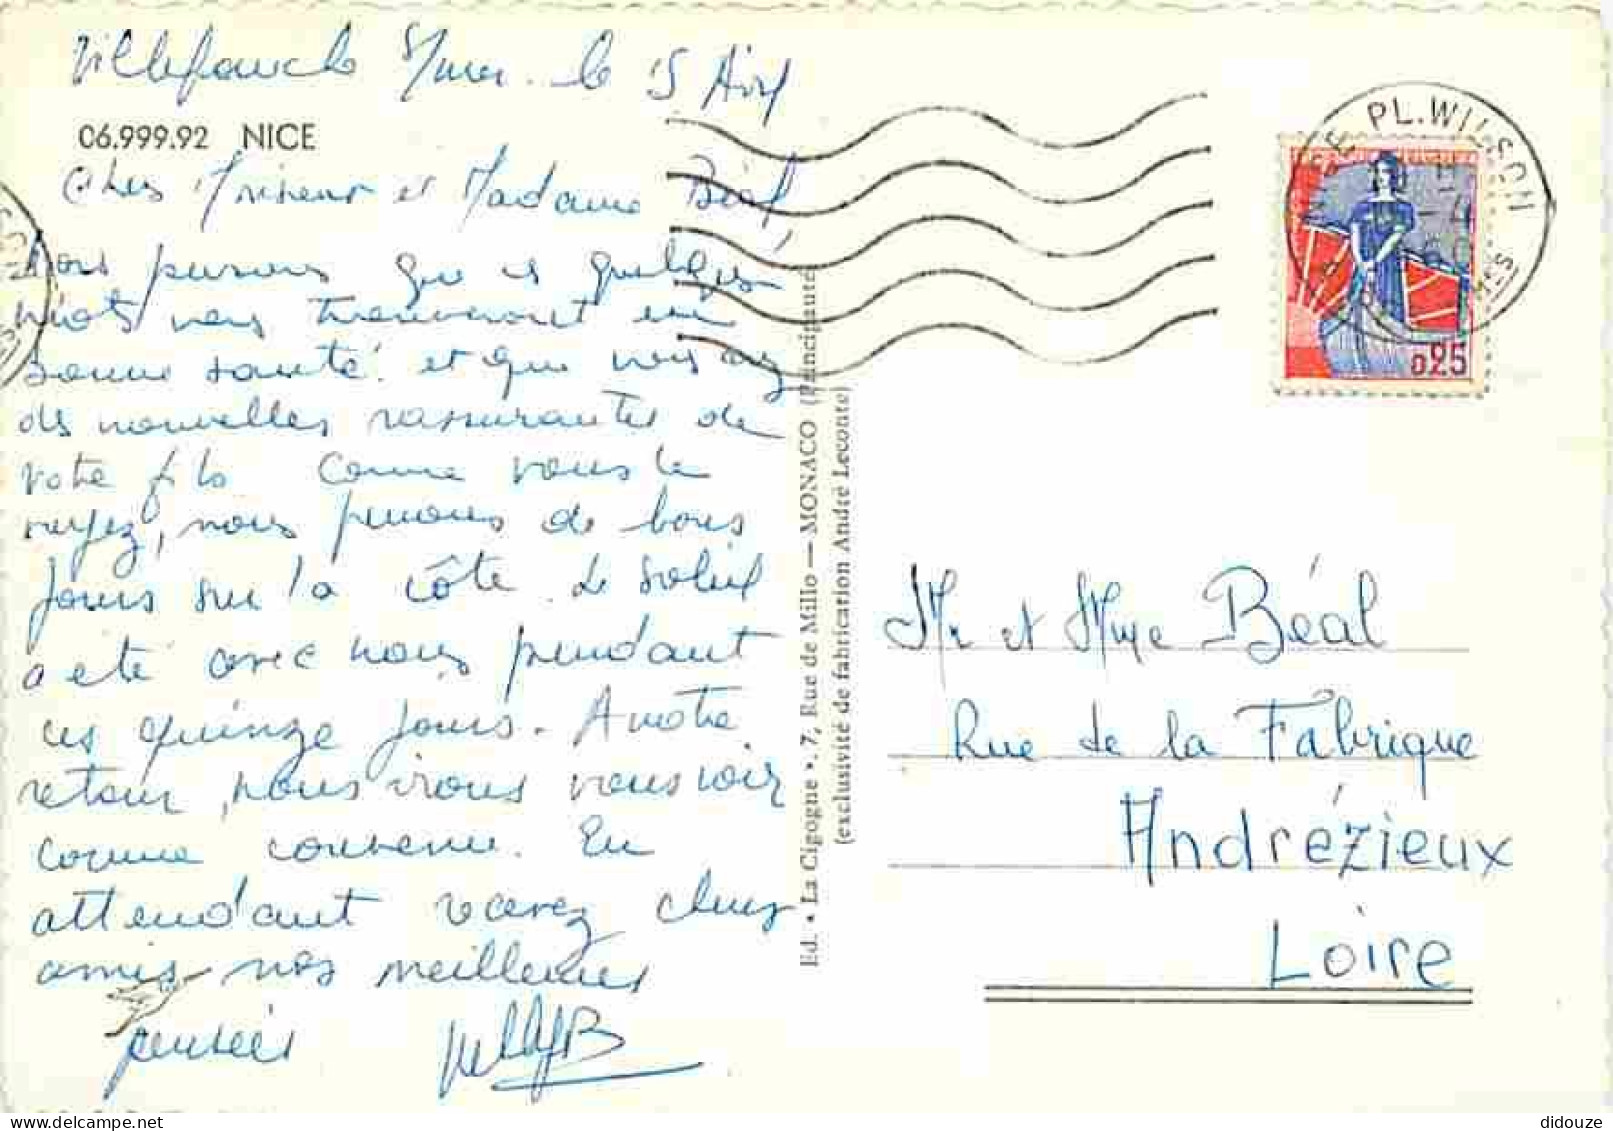 Villefranche s/mer. le 5 Avril
06.999.92 NICE
Chers Monsieur et Madame Béal,
nous pensons que ces quelques
mots vous trouveront en
bonne santé. et que vous avez
des nouvelles rassurantes de
votre fils Comme vous le
voyez, nous prenons de bons
jours sur la côte. Le soleil
a été avec nous pendant
ces quinze jours. A notre
retour, nous irons vous voir
comme convenu. En
attendant recevez chers
amis nos meilleures
pensées
Ed. "La Cigogne". 7, Rue de Millo — MONACO (Principauté)
(exclusivité de fabrication André Leconte)
PL. WILSON
0,25
Mr et Mme Béal
Rue de la Fabrique
Andrézieux
Loire
didouze